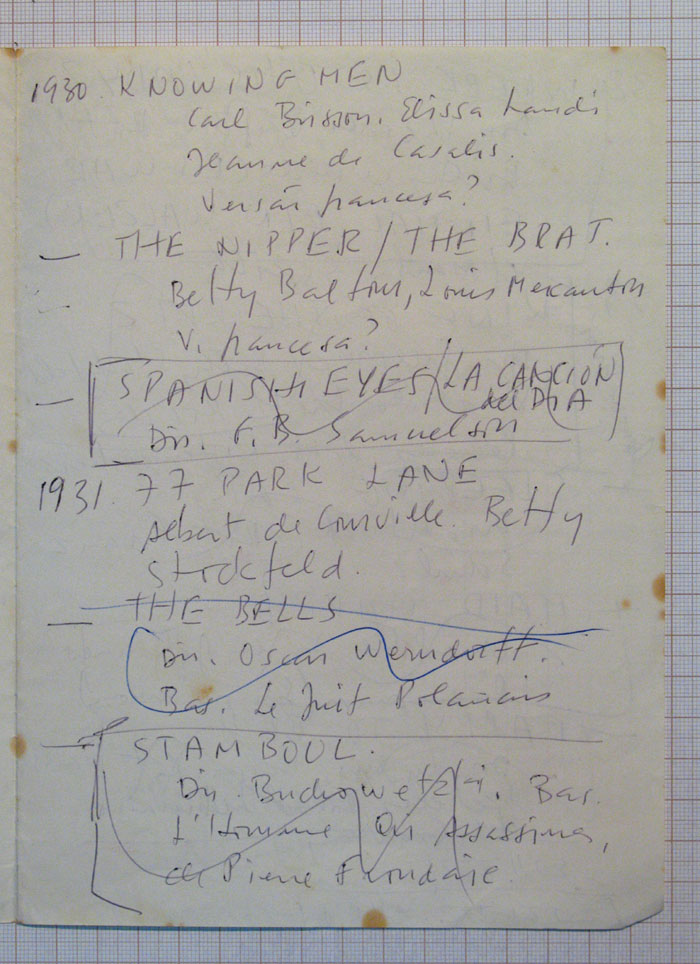 1930. KNOWING MEN
Carl Brisson. Elissa Landi
Jeanne de Casalis.
Versión francesa?
— THE NIPPER / THE BRAT.
Betty Balfour, Louis Mercanton
V. francesa?
— SPANISH EYES / LA CANCIÓN
del DIA
Dir. G. B. Samuelson
1931. 77 PARK LANE
Albert de Courville. Betty
Stockfeld.
— THE BELLS
Dir. Oscar Werndorff.
Bas. Le Juif Polonais
— STAMBOUL.
Dir. Buchowetzki. Bas.
L'Homme Qui Assassina,
de Pierre Frondaie.